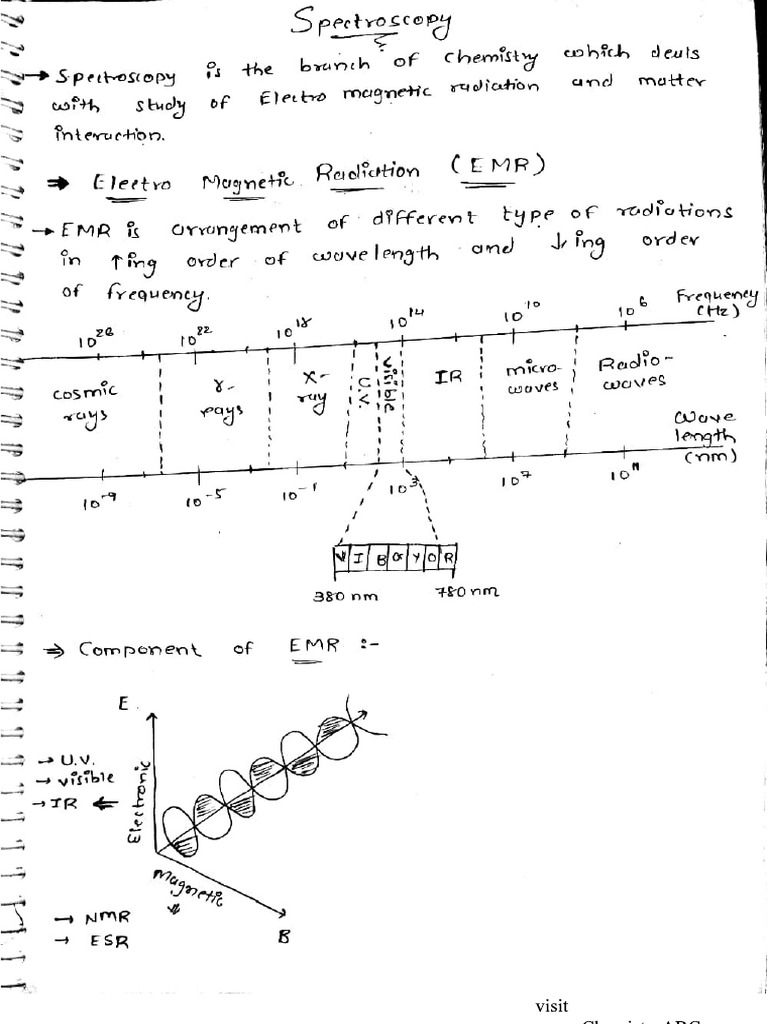 Spectroscopy
→ Spectroscopy is the branch of chemistry which deals
with study of Electro magnetic radiation and matter
interaction.
⇒ Electro Magnetic Radiation (EMR)
→ EMR is arrangement of different type of radiations
in ↑ing order of wavelength and ↓ing order
of frequency.
10²⁶ 10²² 10¹⁸ 10¹⁴ 10¹⁰ 10⁶ Frequency (Hz)
cosmic rays γ-rays X-ray U.V. visible IR micro-waves Radio-waves
Wave length (nm)
10⁻⁹ 10⁻⁵ 10⁻¹ 10³ 10⁷ 10¹¹
V I B G Y O R
380 nm 780 nm
⇒ Component of EMR :-
E
→ U.V.
→ visible
→ IR ⇐
Electronic
Magnetic
→ NMR
→ ESR
B
visit